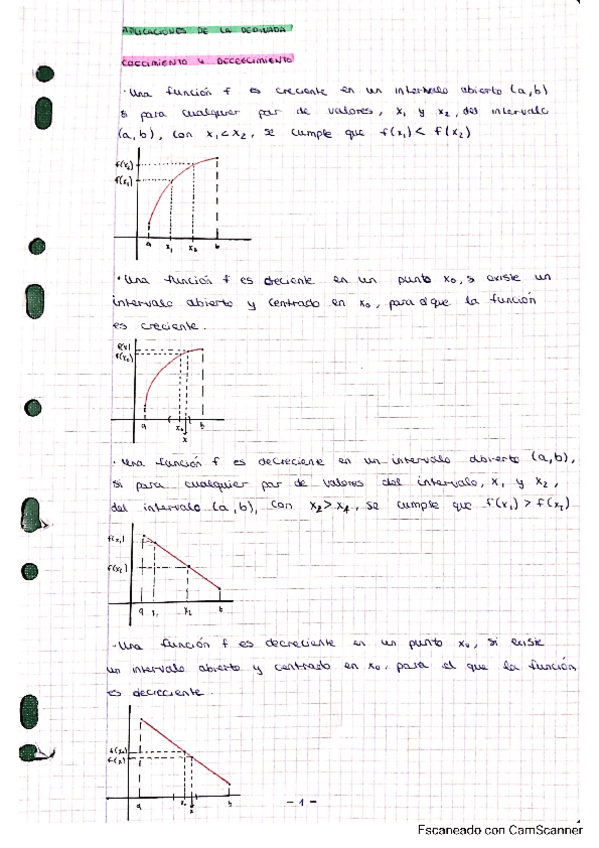 APLICACIONES DE LA DERIVADA
CRECIMIENTO Y DECRECIMIENTO
· Una función f es creciente en un intervalo abierto (a,b)
si para cualquier par de valores, x₁ y x₂, del intervalo
(a,b), con x₁<x₂, se cumple que f(x₁) < f(x₂)
f(x₂)
f(x₁)
a x₁ x₂ b
· Una función f es creciente en un punto x₀, si existe un
intervalo abierto y centrado en x₀, para el que la función
es creciente.
f(x)
f(x₀)
a x₀ b
x
· Una función f es decreciente en un intervalo abierto (a,b),
si para cualquier par de valores del intervalo, x₁ y x₂,
del intervalo (a,b), con x₂>x₁, se cumple que f(x₁) > f(x₂)
f(x₁)
f(x₂)
a x₁ x₂ b
· Una función f es decreciente en un punto x₀, si existe
un intervalo abierto y centrado en x₀, para el que la función
es decreciente.
f(x₀)
f(x)
a x₀ b
x
- 1 -
Escaneado con CamScanner